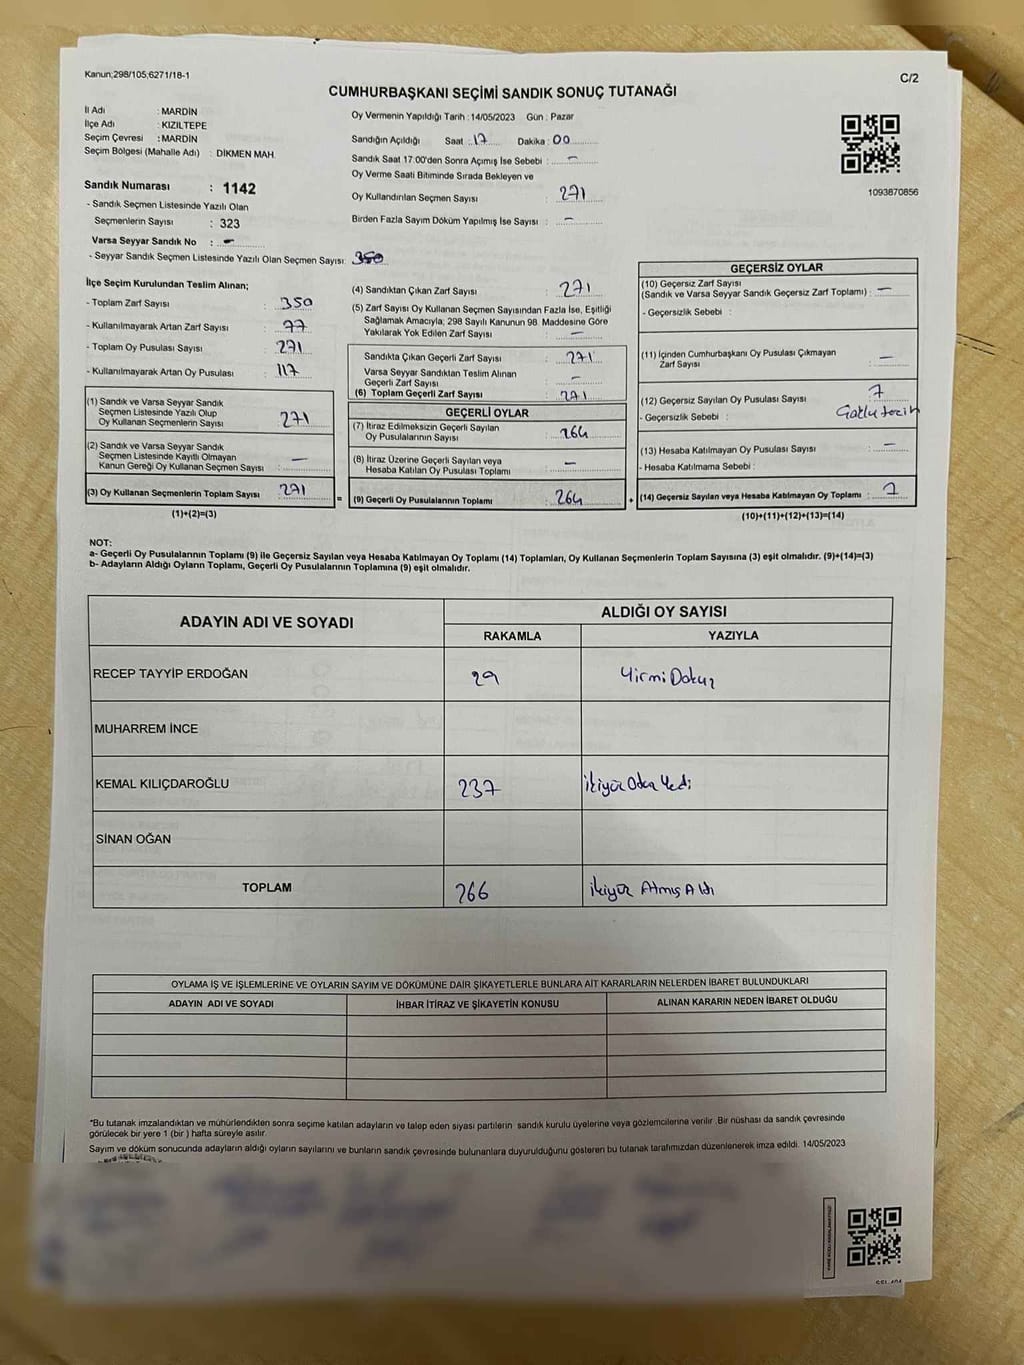 Kanun;298/105,6271/18-1
C/2
CUMHURBAŞKANI SEÇİMİ SANDIK SONUÇ TUTANAĞI
İl Adı : MARDİN
İlçe Adı : KIZILTEPE
Seçim Çevresi : MARDİN
Seçim Bölgesi (Mahalle Adı) : DİKMEN MAH.
Sandık Numarası : 1142
- Sandık Seçmen Listesinde Yazılı Olan
Seçmenlerin Sayısı : 323
Varsa Seyyar Sandık No : -
- Seyyar Sandık Seçmen Listesinde Yazılı Olan Seçmen Sayısı: 350
Oy Vermenin Yapıldığı Tarih : 14/05/2023 Gün : Pazar
Sandığın Açıldığı Saat : 17 Dakika : 00
Sandık Saat 17:00'den Sonra Açımış İse Sebebi : -
Oy Verme Saati Bitiminde Sırada Bekleyen ve
Oy Kullandırılan Seçmen Sayısı : 271
Birden Fazla Sayım Döküm Yapılmış İse Sayısı : -
1093870856
İlçe Seçim Kurulundan Teslim Alınan;
- Toplam Zarf Sayısı : 350
- Kullanılmayarak Artan Zarf Sayısı : 77
- Toplam Oy Pusulası Sayısı : 271
- Kullanılmayarak Artan Oy Pusulası : 117
(1) Sandık ve Varsa Seyyar Sandık
Seçmen Listesinde Yazılı Olup
Oy Kullanan Seçmenlerin Sayısı : 271
(2) Sandık ve Varsa Seyyar Sandık
Seçmen Listesinde Kayıtlı Olmayan
Kanun Gereği Oy Kullanan Seçmen Sayısı : -
(3) Oy Kullanan Seçmenlerin Toplam Sayısı : 271
(1)+(2)=(3)
(4) Sandıktan Çıkan Zarf Sayısı : 271
(5) Zarf Sayısı Oy Kullanan Seçmen Sayısından Fazla İse, Eşitliği
Sağlamak Amacıyla; 298 Sayılı Kanunun 98. Maddesine Göre
Yakılarak Yok Edilen Zarf Sayısı : -
Sandıkta Çıkan Geçerli Zarf Sayısı : 271
Varsa Seyyar Sandıktan Teslim Alınan
Geçerli Zarf Sayısı : -
(6) Toplam Geçerli Zarf Sayısı : 271
GEÇERLİ OYLAR
(7) İtiraz Edilmeksizin Geçerli Sayılan
Oy Pusulalarının Sayısı : 264
(8) İtiraz Üzerine Geçerli Sayılan veya
Hesaba Katılan Oy Pusulası Toplamı : -
= (9) Geçerli Oy Pusulalarının Toplamı : 264
GEÇERSİZ OYLAR
(10) Geçersiz Zarf Sayısı
(Sandık ve Varsa Seyyar Sandık Geçersiz Zarf Toplamı) : -
- Geçersizlik Sebebi :
(11) İçinden Cumhurbaşkanı Oy Pusulası Çıkmayan
Zarf Sayısı : -
(12) Geçersiz Sayılan Oy Pusulası Sayısı : 7
- Geçersizlik Sebebi :
(13) Hesaba Katılmayan Oy Pusulası Sayısı : -
- Hesaba Katılmama Sebebi :
+ (14) Geçersiz Sayılan veya Hesaba Katılmayan Oy Toplamı : 7
(10)+(11)+(12)+(13)=(14)
NOT:
a- Geçerli Oy Pusulalarının Toplamı (9) ile Geçersiz Sayılan veya Hesaba Katılmayan Oy Toplamı (14) Toplamları, Oy Kullanan Seçmenlerin Toplam Sayısına (3) eşit olmalıdır. (9)+(14)=(3)
b- Adayların Aldığı Oyların Toplamı, Geçerli Oy Pusulalarının Toplamına (9) eşit olmalıdır.
ADAYIN ADI VE SOYADI
ALDIĞI OY SAYISI
RAKAMLA YAZIYLA
RECEP TAYYİP ERDOĞAN 29 Yirmi Dokuz
MUHARREM İNCE
KEMAL KILIÇDAROĞLU 237 İkiyüz Otuz Yedi
SİNAN OĞAN
TOPLAM 266 İkiyüz Atmış Altı
OYLAMA İŞ VE İŞLEMLERİNE VE OYLARIN SAYIM VE DÖKÜMÜNE DAİR ŞİKAYETLERLE BUNLARA AİT KARARLARIN NELERDEN İBARET BULUNDUKLARI
ADAYIN ADI VE SOYADI İHBAR İTİRAZ VE ŞİKAYETİN KONUSU ALINAN KARARIN NEDEN İBARET OLDUĞU
*Bu tutanak imzalandıktan ve mühürlendikten sonra seçime katılan adayların ve talep eden siyasi partilerin sandık kurulu üyelerine veya gözlemcilerine verilir .Bir nüshası da sandık çevresinde
görülecek bir yere 1 (bir ) hafta süreyle asılır.
Sayım ve döküm sonucunda adayların aldığı oyların sayılarını ve bunların sandık çevresinde bulunanlara duyurulduğunu gösteren bu tutanak tarafımızdan düzenlenerek imza edildi. 14/05/2023